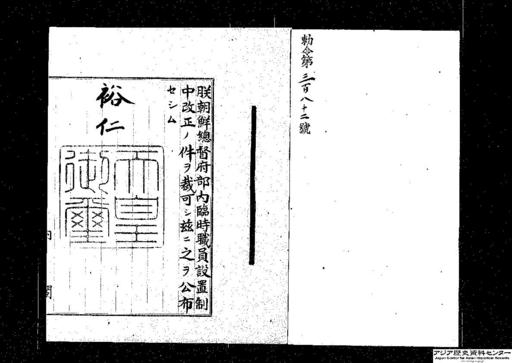 勅令第三百八十二號
朕朝鮮總督府部內臨時職員設置制
中改正ノ件ヲ裁可シ茲ニ之ヲ公布
セシム
裕仁
天皇
御璽
内 閣
アジア歴史資料センター
Japan Center for Asian Historical Records